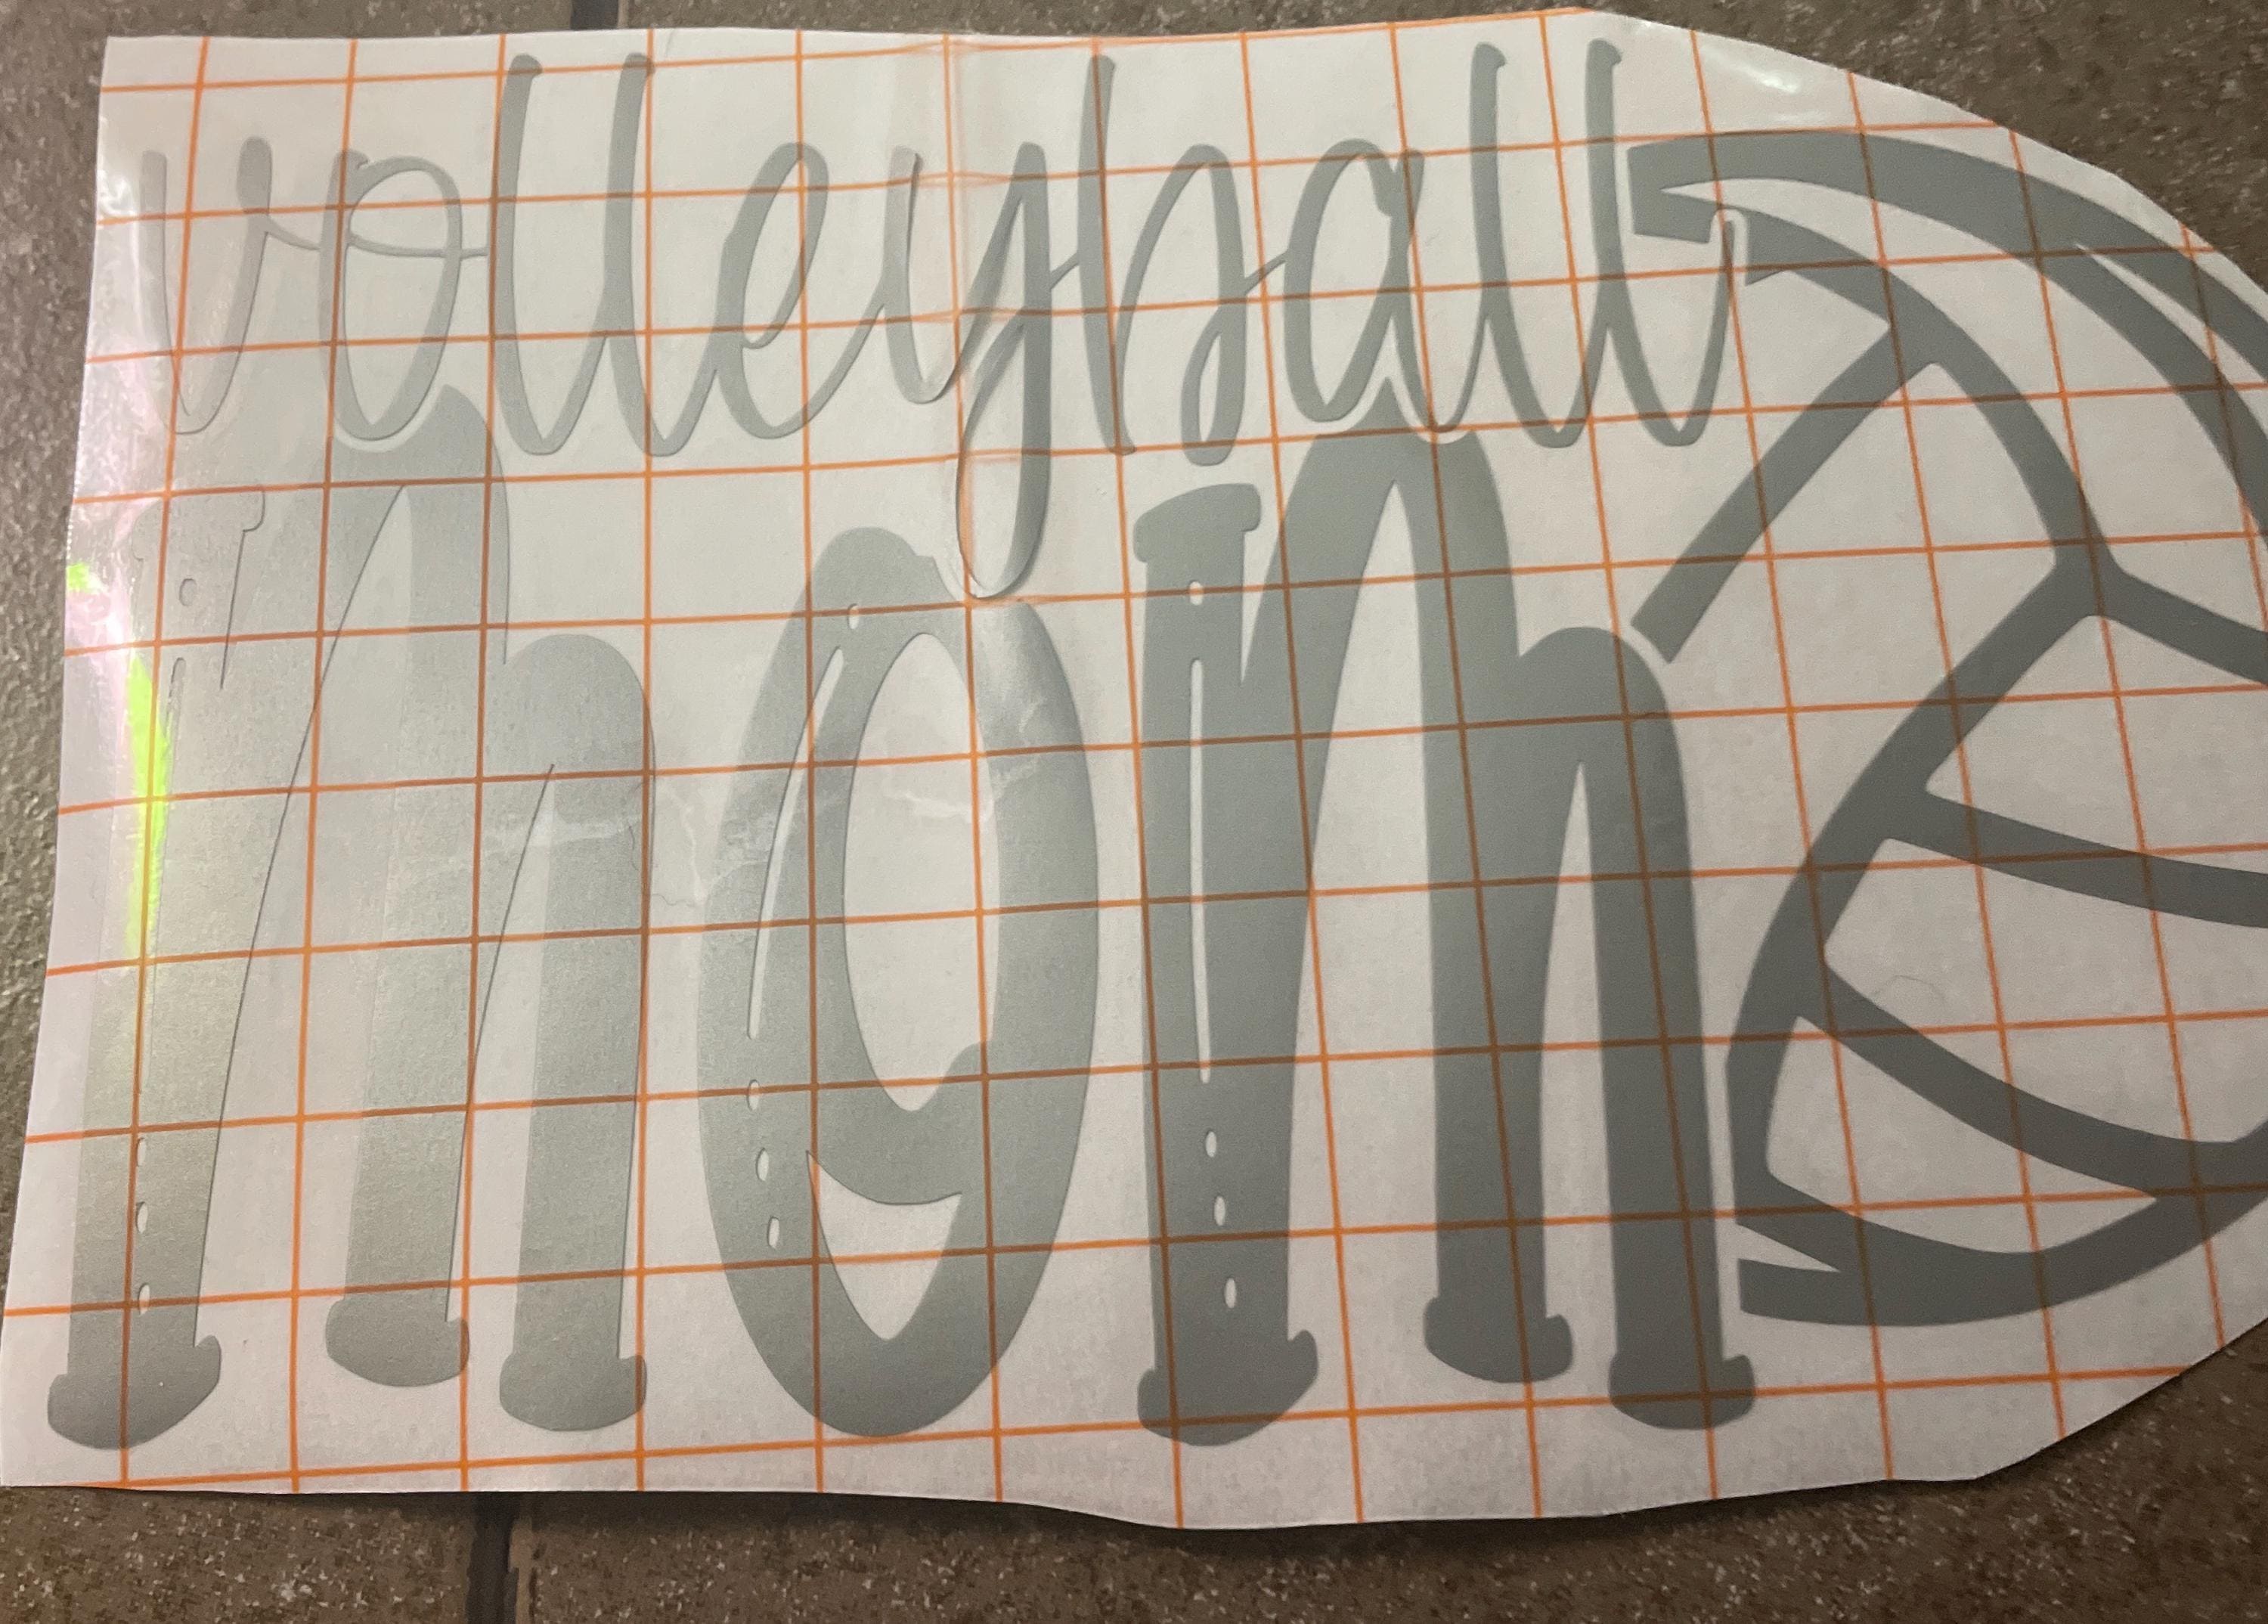 volleyball
mom